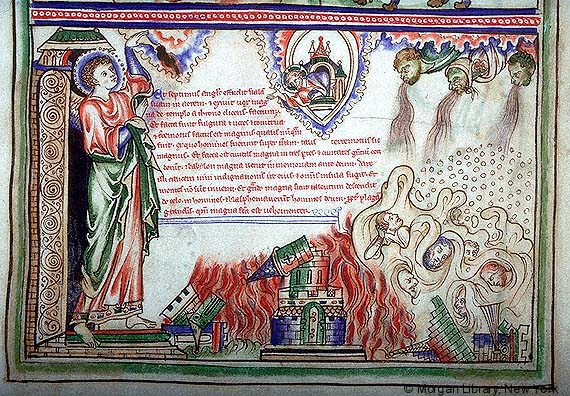 Et septimus angls effudit fiala
suam in aerem. 7 exiuit uox mag
na de templo a throno dicens. factum.
Et facta sunt fulgura 7 uoces 7 tonitrua
7 terremotus factus est magnus qualis nunqm
fuit. ex quo homines fuerunt super tram. talis terremotus sic
magnus. Et facta est ciuitas magna in tres ptes. 7 ciuitates ceci
derunt. Babylon magna uenit in memoriam ante deum. dare
illi calicem uini indignationis ire eius. 7 omnis insula fugit. Et
montes inuenti. Et magna sicut talentum descendit
de celo in homines. 7 blasphemauerunt homines deum. ppt plagā
grandis. qm magna est uehementer.
© Morgan Library, New York